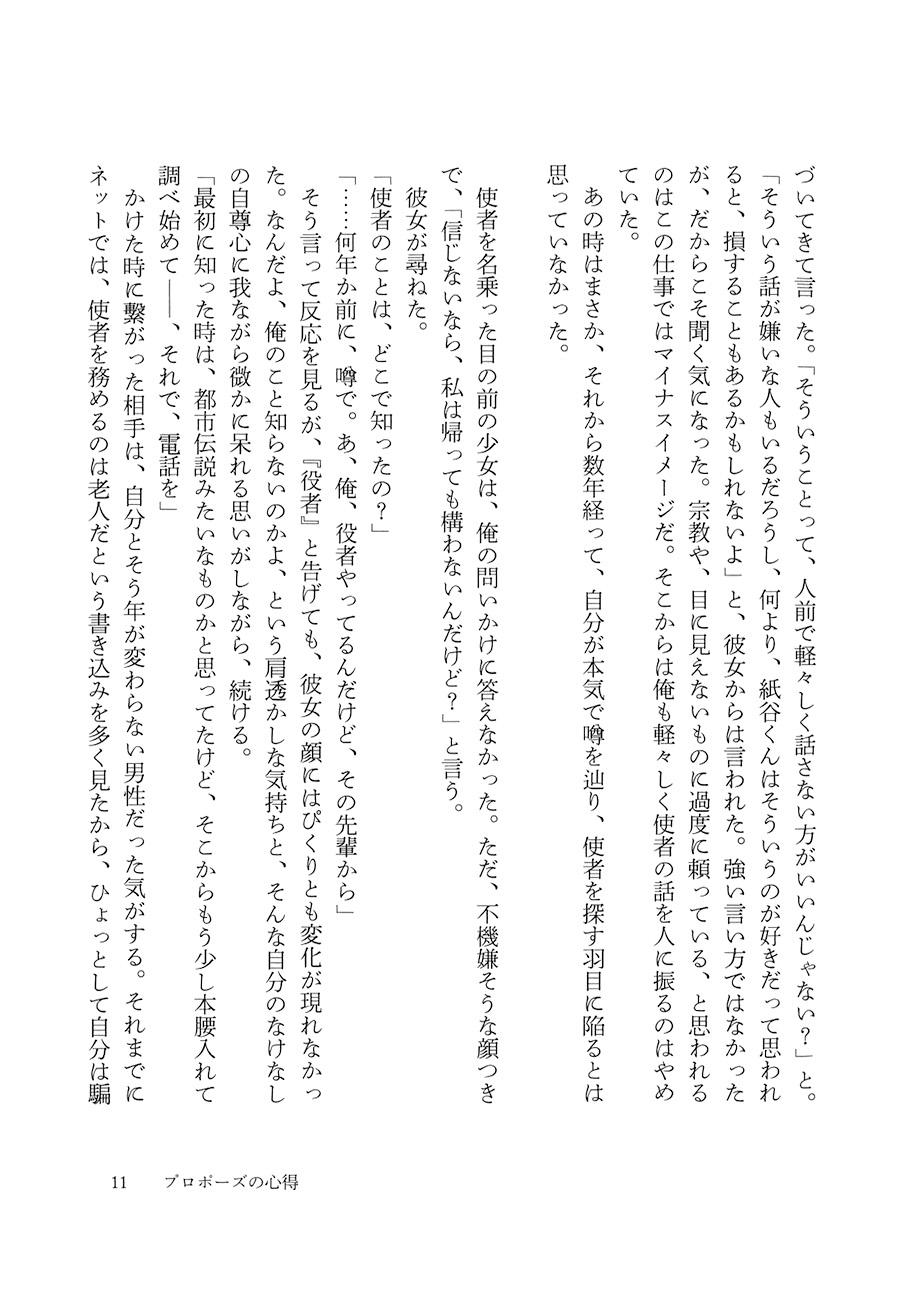 づいてきて言った。「そういうことって、人前で軽々しく話さない方がいいんじゃない？」と。
「そういう話が嫌いな人もいるだろうし、何より、紙谷くんはそういうのが好きだって思われ
ると、損することもあるかもしれないよ」と、彼女からは言われた。強い言い方ではなかった
が、だからこそ聞く気になった。宗教や、目に見えないものに過度に頼っている、と思われる
のはこの仕事ではマイナスイメージだ。そこからは俺も軽々しく使者の話を人に振るのはやめ
ていた。
あの時はまさか、それから数年経って、自分が本気で噂を辿り、使者を探す羽目に陥るとは
思っていなかった。
使者を名乗った目の前の少女は、俺の問いかけに答えなかった。ただ、不機嫌そうな顔つき
で、「信じないなら、私は帰っても構わないんだけど？」と言う。
彼女が尋ねた。
「使者のことは、どこで知ったの？」
「……何年か前に、噂で。あ、俺、役者やってるんだけど、その先輩から」
そう言って反応を見るが、『役者』と告げても、彼女の顔にはぴくりとも変化が現れなかっ
た。なんだよ、俺のこと知らないのかよ、という肩透かしな気持ちと、そんな自分のなけなし
の自尊心に我ながら微かに呆れる思いがしながら、続ける。
「最初に知った時は、都市伝説みたいなものかと思ってたけど、そこからもう少し本腰入れて
調べ始めて――、それで、電話を」
かけた時に繋がった相手は、自分とそう年が変わらない男性だった気がする。それまでに
ネットでは、使者を務めるのは老人だという書き込みを多く見たから、ひょっとして自分は騙
11 プロポーズの心得